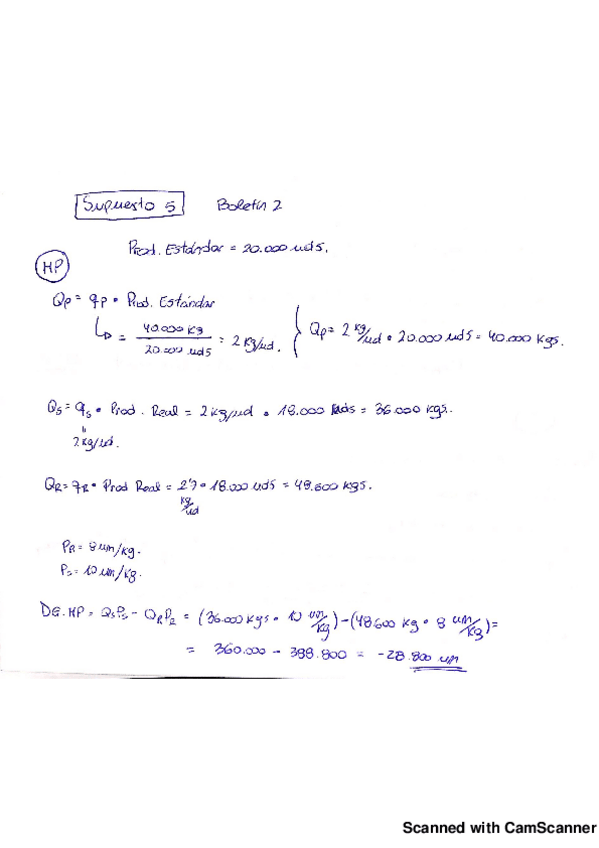 Supuesto 5 Boletín 2
Prod. Estándar = 20.000 uds.
MP
Qp = qp • Prod. Estándar
↳ = 40.000 Kg / 20.000 uds = 2 Kg/ud. { Qp = 2 Kg/ud • 20.000 uds = 40.000 Kgs.
Qs = qs • Prod. Real = 2 kg/ud • 18.000 uds = 36.000 kgs.
2 kg/ud.
QR = qR • Prod Real = 2'7 • 18.000 uds = 48.600 kgs.
kg/ud
PR = 8 um/kg.
Ps = 10 um/kg.
DG. MP = QsPs - QRPR = (36.000 kgs • 10 um/kg) - (48.600 kg • 8 um/kg) =
= 360.000 - 388.800 = -28.800 um
Scanned with CamScanner